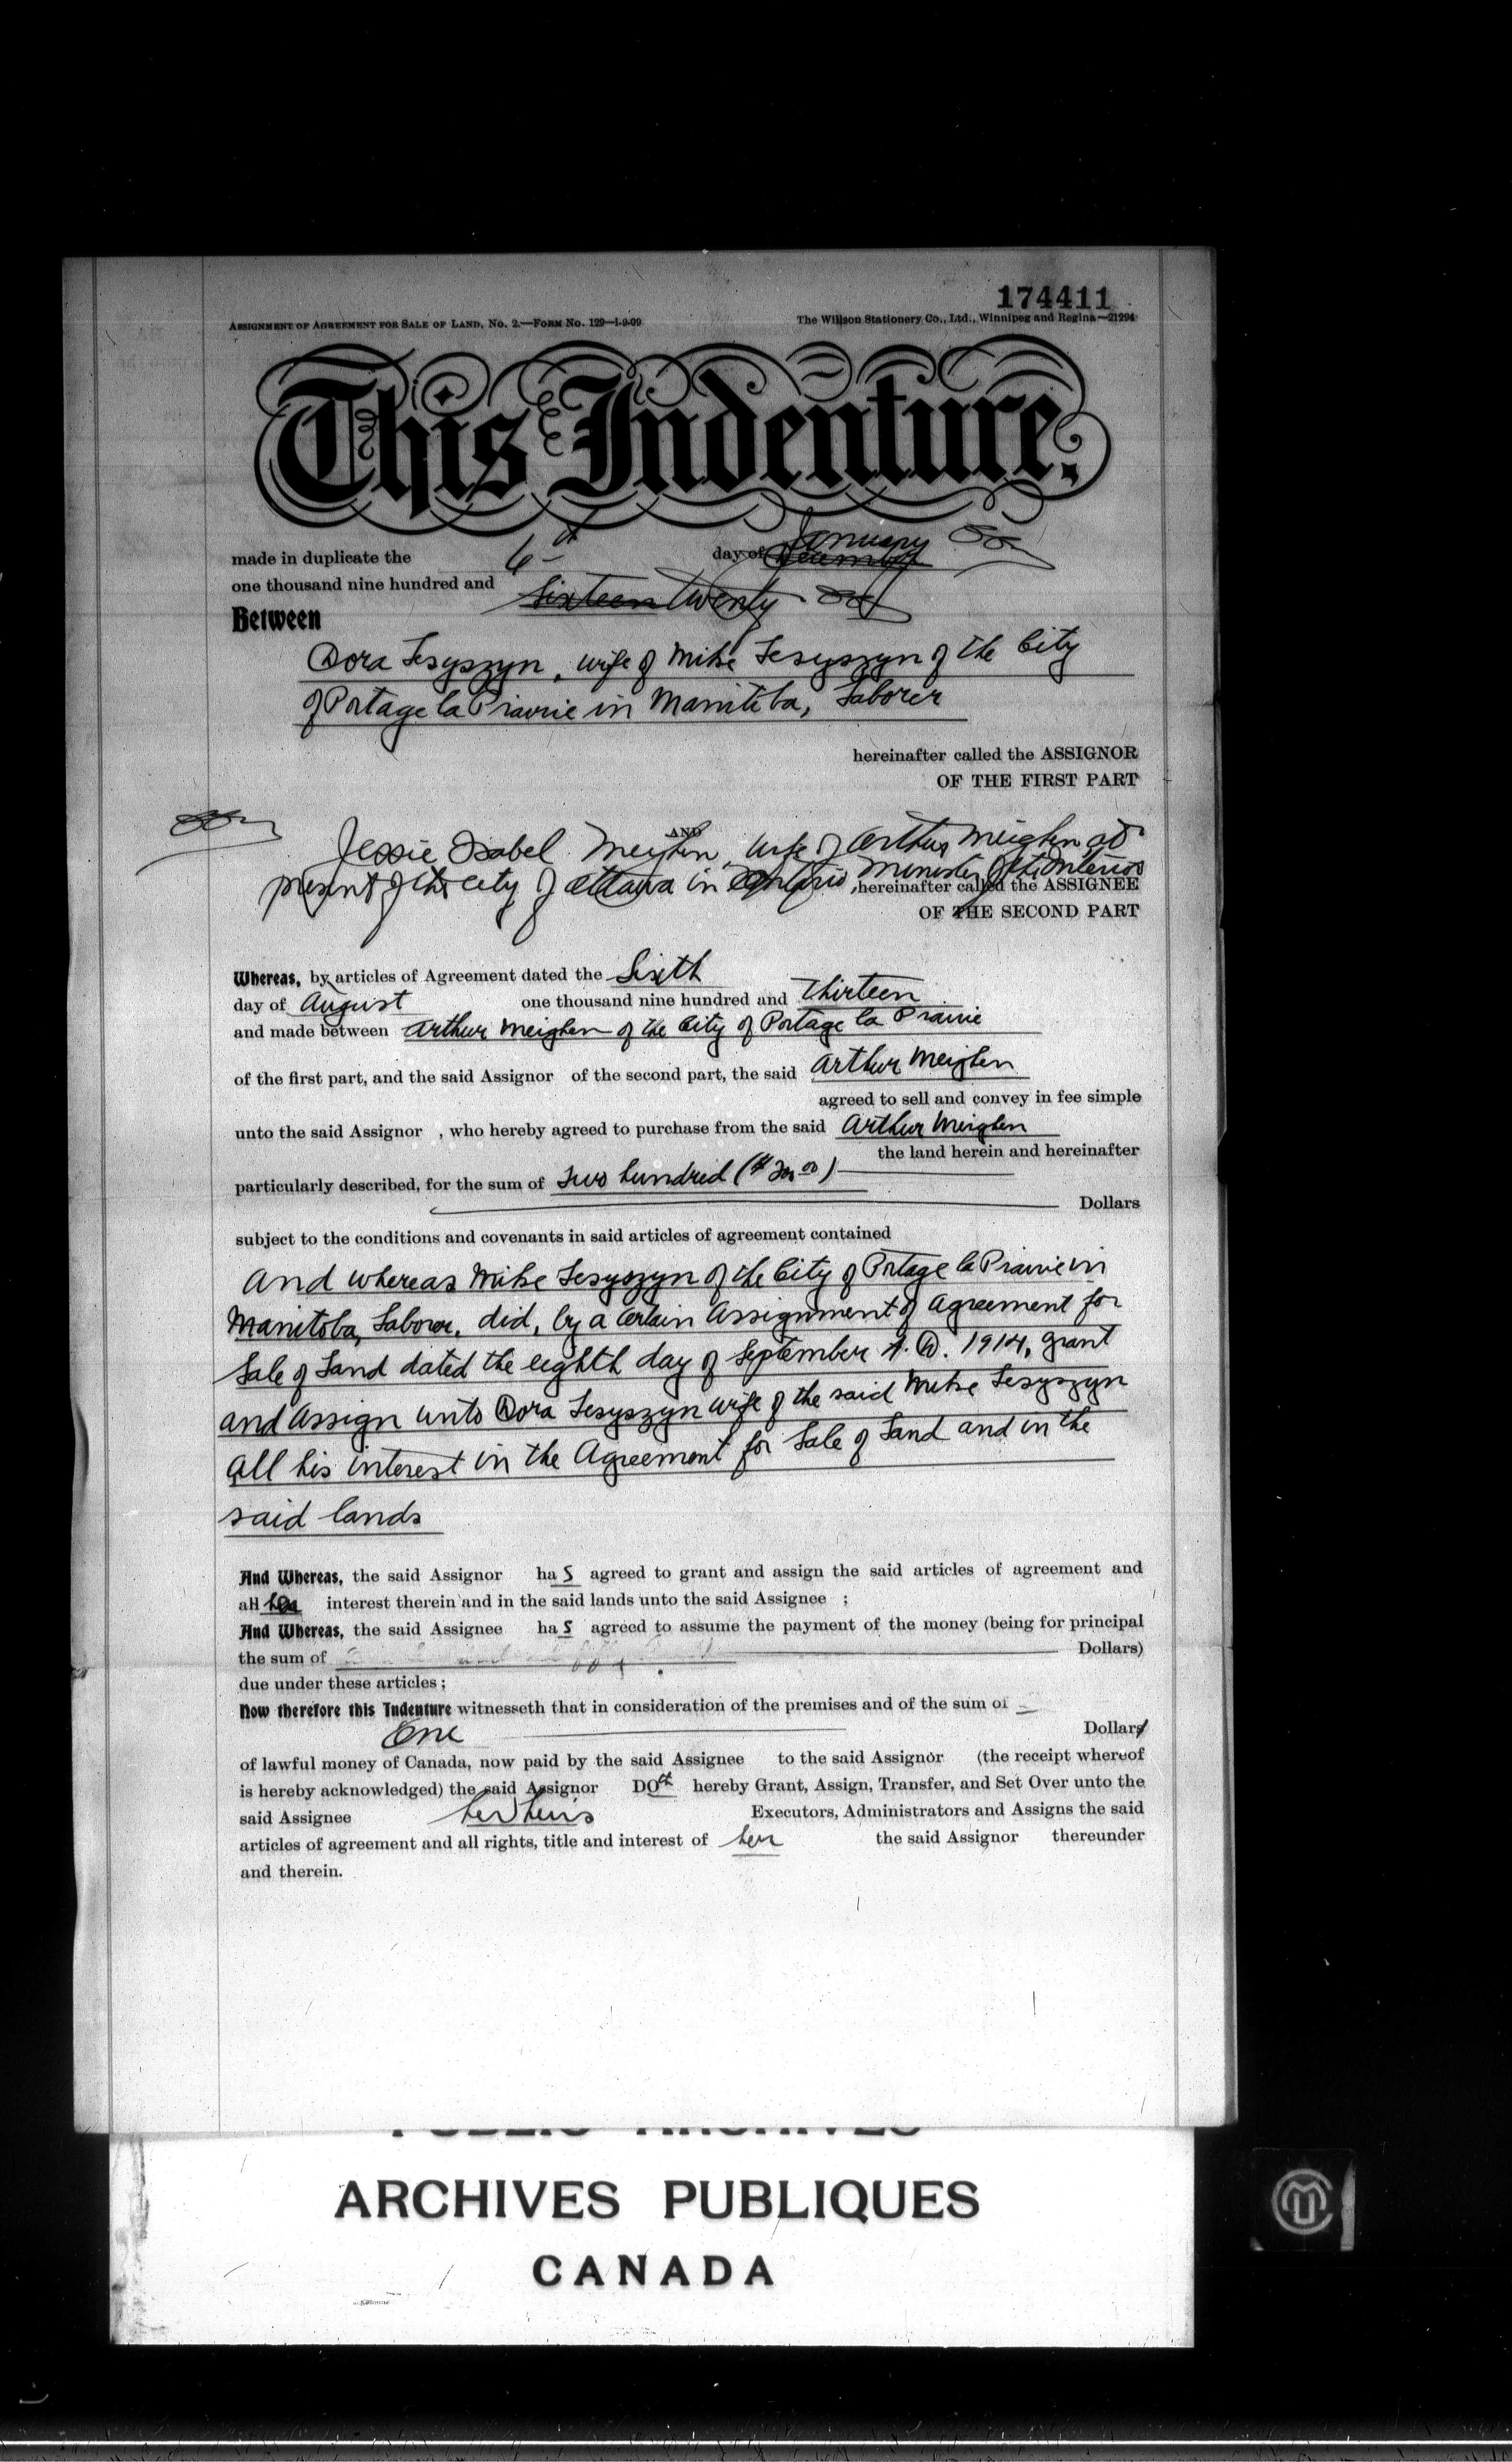 174411
ASSIGNMENT OF AGREEMENT FOR SALE OF LAND, No. 2.—FORM No. 129—1-9-09
The Willson Stationery Co., Ltd., Winnipeg and Regina—21294
This Indenture.
made in duplicate the 6th day of December January
one thousand nine hundred and Sixteen twenty
Between
Dora Lesyszyn, wife of Mike Lesyszyn of the City
of Portage la Prairie in Manitoba, Laborer
hereinafter called the ASSIGNOR
OF THE FIRST PART
AND
Jessie Isabel Meighen, wife of Arthur Meighen at
present of the City of Ottawa in Ontario, Minister of the Interior
hereinafter called the ASSIGNEE
OF THE SECOND PART
Whereas, by articles of Agreement dated the Sixth
day of August one thousand nine hundred and Thirteen
and made between Arthur Meighen of the City of Portage la Prairie
of the first part, and the said Assignor of the second part, the said Arthur Meighen
agreed to sell and convey in fee simple
unto the said Assignor , who hereby agreed to purchase from the said Arthur Meighen
the land herein and hereinafter
particularly described, for the sum of Two hundred ($200.00)
Dollars
subject to the conditions and covenants in said articles of agreement contained
And whereas Mike Lesyszyn of the City of Portage la Prairie in
Manitoba, Laborer, did, by a certain Assignment of Agreement for
Sale of Land dated the eighth day of September A.D. 1914, grant
and assign unto Dora Lesyszyn wife of the said Mike Lesyszyn
all his interest in the Agreement for Sale of Land and in the
said lands
And Whereas, the said Assignor has agreed to grant and assign the said articles of agreement and
all her interest therein and in the said lands unto the said Assignee ;
And Whereas, the said Assignee has agreed to assume the payment of the money (being for principal
the sum of Dollars)
due under these articles ;
Now therefore this Indenture witnesseth that in consideration of the premises and of the sum of
One Dollars
of lawful money of Canada, now paid by the said Assignee to the said Assignor (the receipt whereof
is hereby acknowledged) the said Assignor DOth hereby Grant, Assign, Transfer, and Set Over unto the
said Assignee her heirs Executors, Administrators and Assigns the said
articles of agreement and all rights, title and interest of her the said Assignor thereunder
and therein.
PUBLIC ARCHIVES
ARCHIVES PUBLIQUES
CANADA